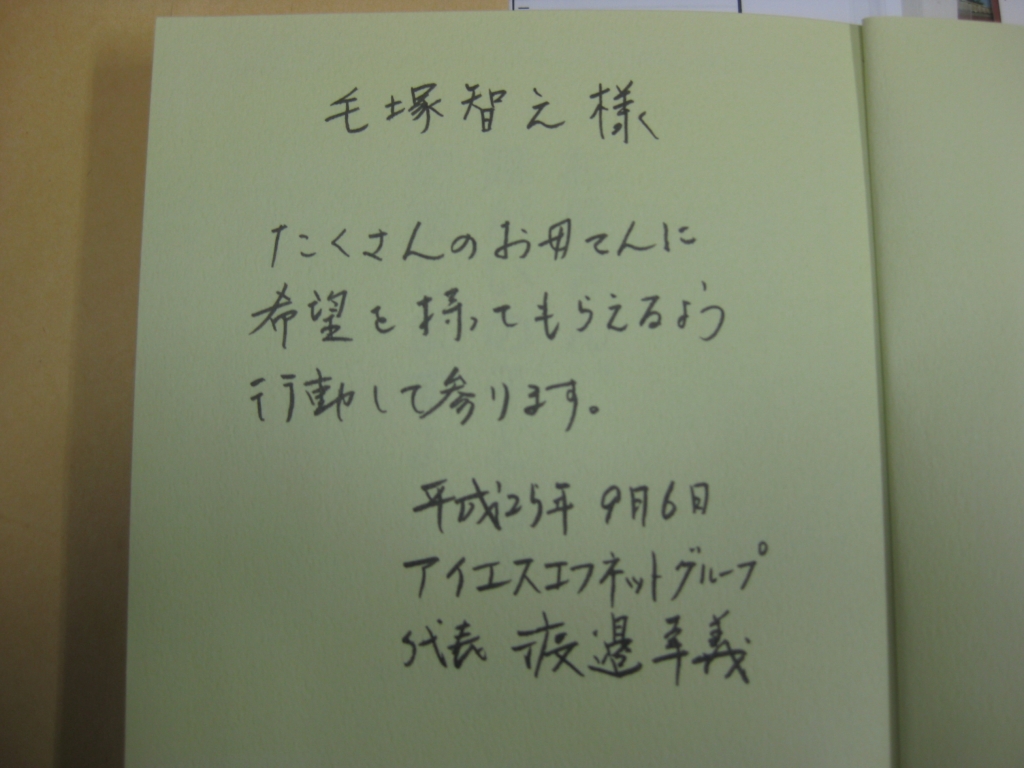 毛塚智え様
たくさんのお母さんに
希望を持ってもらえるよう
行動して参ります。
平成25年 9月6日
アイエスエフネットグループ
代表 渡邉幸義